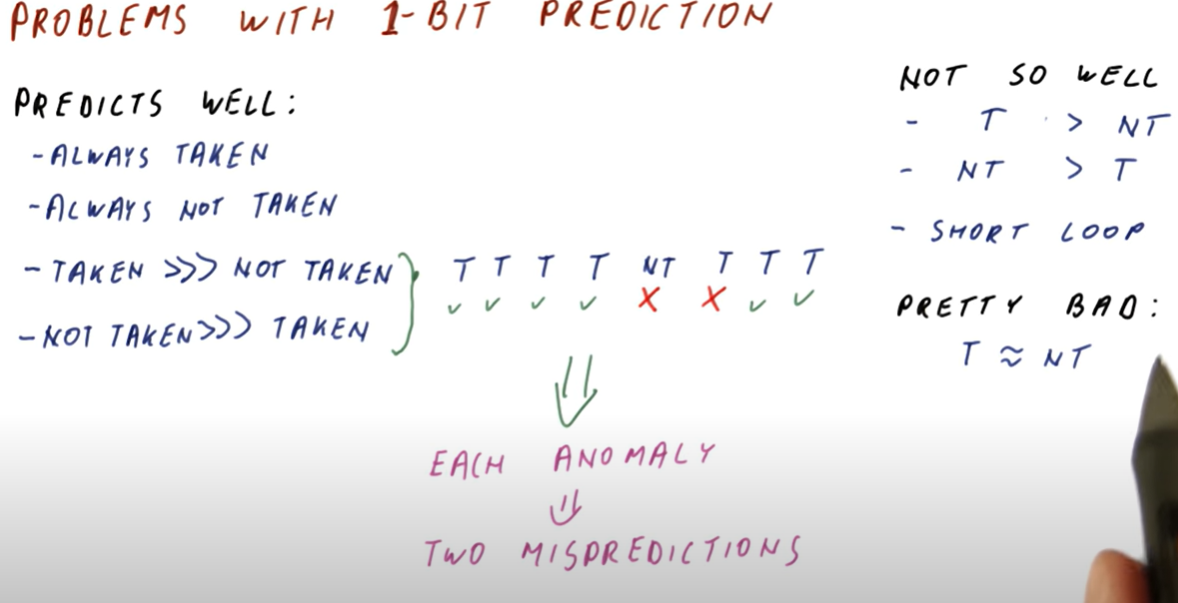 PROBLEMS WITH 1-BIT PREDICTION
PREDICTS WELL:
- ALWAYS TAKEN
- ALWAYS NOT TAKEN
- TAKEN >>> NOT TAKEN
- NOT TAKEN >>> TAKEN
T T T T NT T T T
✓ ✓ ✓ ✓ X X ✓ ✓
⇓
EACH ANOMALY
⇓
TWO MISPREDICTIONS
NOT SO WELL
- T > NT
- NT > T
- SHORT LOOP
PRETTY BAD:
T ≈ NT